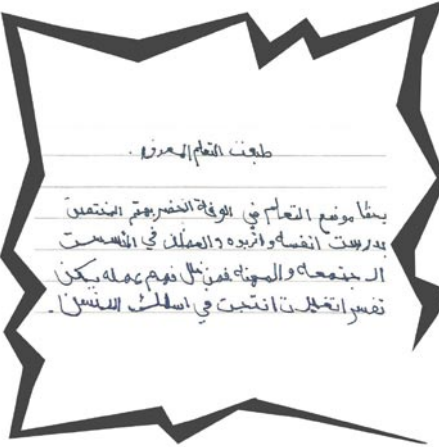 طبعت التعلم المعرفي .
يحثا موضع التعلم في الوقة الحضر يهتم المختصين
بدرست انفسه و اتربوه و العمللن في الئسست
الـ جتمعه و المهنه فمن خلل فهم عمله يمكن
تفسر اتغيرت انتجت في اسللك النسن .